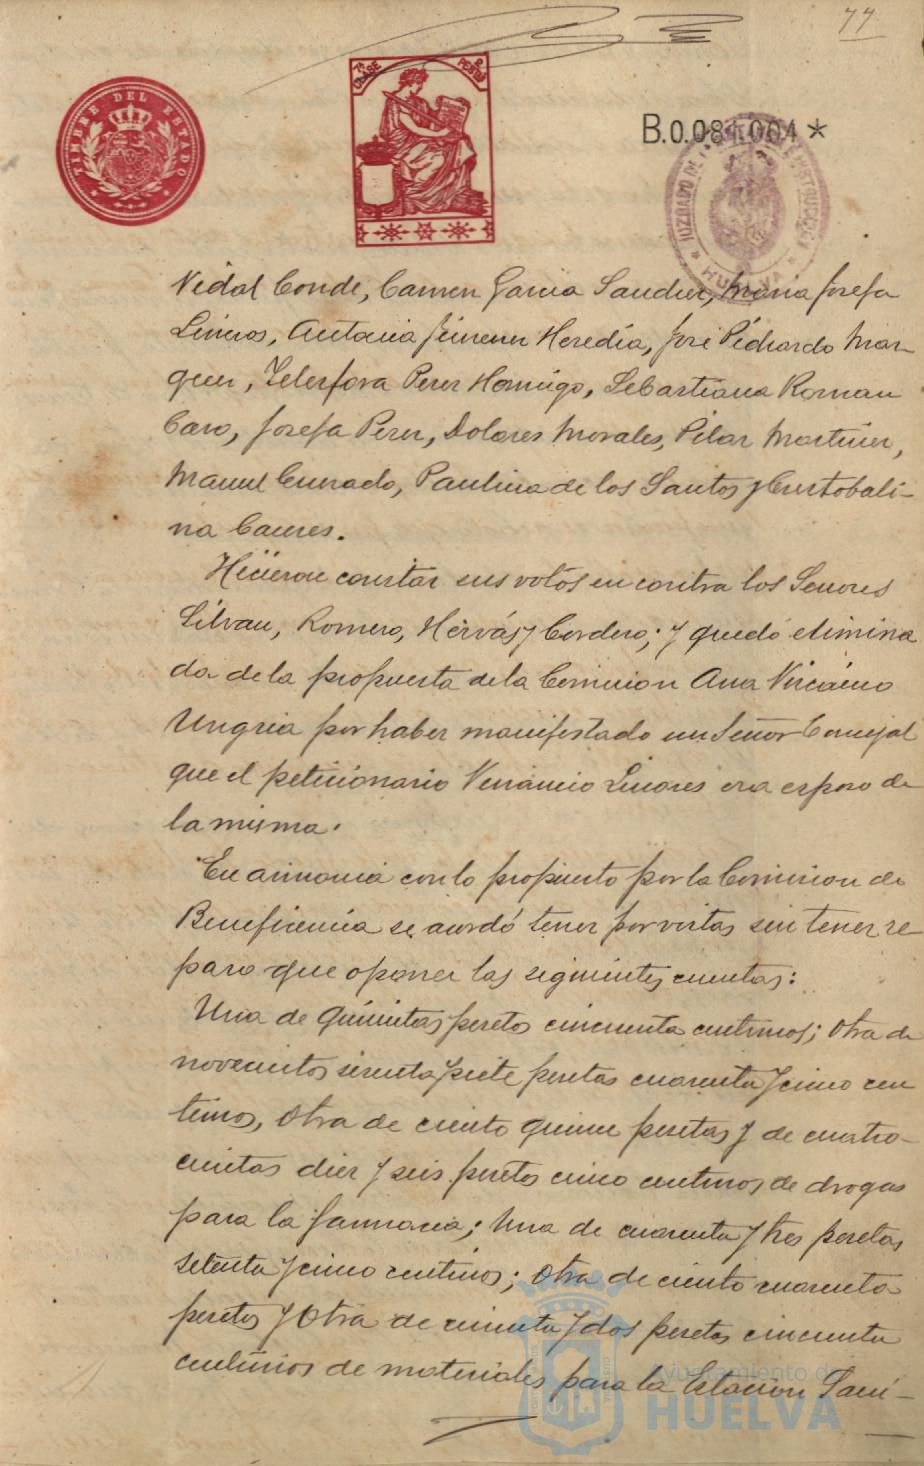 77
TIMBRE DEL ESTADO
7ª CLASE
B.0.081.004 *
JUZGADO DE INSTRUCCION
HUELVA
Vidal Conde, Carmen Garcia Sanchez, Maria Josefa
Lineros, Antonia Jimenez Heredia, José Pichardo Mar-
quez, Telesfora Perez Hormigo, Sebastiana Roman
Caro, Josefa Perez, Dolores Morales, Pilar Martinez,
Manuel Cumado, Paulina de los Santos y Cristobali-
na Caceres.
Hicieron constar sus votos en contra los Señores
Silvan, Romero, Hervás y Cordero; y quedó elimina
da de la propuesta de la Comision Ana Vizcaino
Ungria por haber manifestado un Señor Concejal
que el peticionario Venancio Linares era esposo de
la misma.
En armonia con lo propuesto por la Comision de
Beneficencia se acordó tener por vistas sin tener re
paro que oponer las siguientes cuentas:
Una de quinientas pesetas cincuenta centimos; otra de
novecientos sesenta y siete pesetas cuarenta y cinco cen
timos, otra de ciento quince pesetas y de cuatro-
cientas diez y seis pesetas cinco centimos de drogas
para la farmacia; una de cuarenta y tres pesetas
setenta y cinco centimos; otra de ciento cuarenta
pesetas y otra de cincuenta y dos pesetas cincuenta
centimos de materiales para la Estacion Sani-
Ayuntamiento de
HUELVA